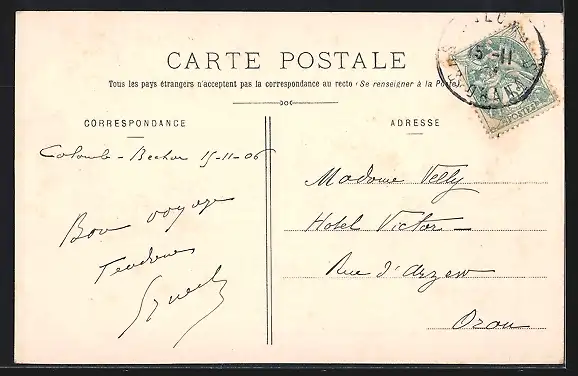 CARTE POSTALE
Tous les pays étrangers n'acceptent pas la correspondance au recto (Se renseigner à la Poste).
CORRESPONDANCE
ADRESSE
Colomb-Bechar 15-11-06
Bon voyage
Tendresses
Madame Velly
Hotel Victor
Rue d'Arzew
Oran
5-11
ORAN
POSTES